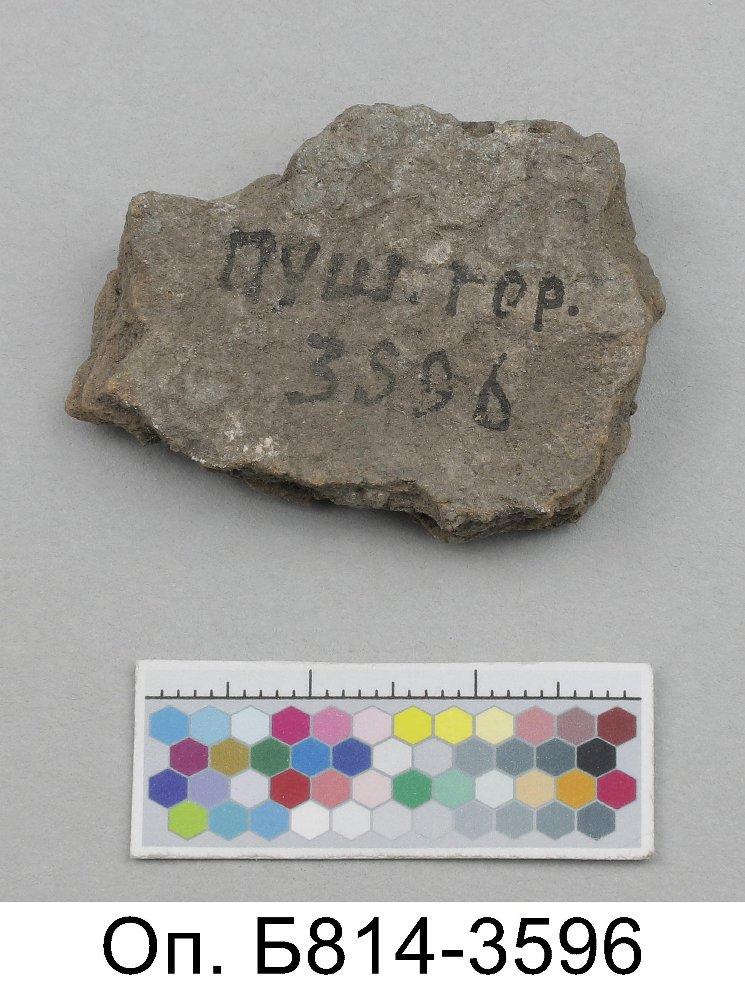 Пуш. гор.
3596
Оп. Б814-3596